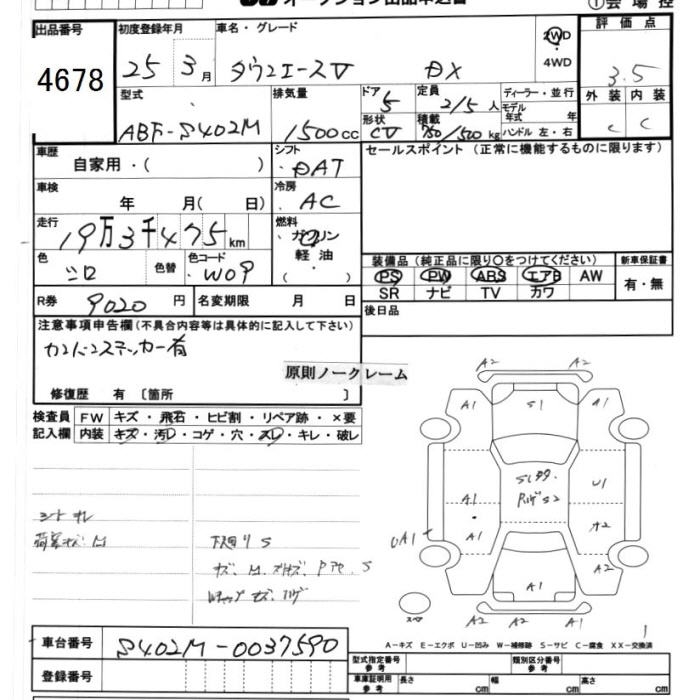 オークション出品申込書
①会場控
出品番号 初度登録年月 車名・グレード 評価点
4678 25年 3月 タウンエースV DX 2WD・4WD 3.5
型式 排気量 ドア 定員 ディーラー・並行 外装 内装
ABF-S402M 1500cc 5 2/5人 モデル年式 年 C C
形状 積載 ハンドル 左・右
CV 750/500kg
車歴 シフト セールスポイント (正常に機能するものに限ります)
自家用・( ) DAT
車検 冷房
年 月( 日) AC
走行 燃料
19万3千475km ガソリン
色 色替 色コード 軽油
シロ W09 ( )
装備品 (純正品に限り〇をつけてください) 新車保証書
PS PW ABS エアB AW 有・無
SR ナビ TV カワ
R券 9020円 名変期限 月 日 後日品
注意事項申告欄 (不具合内容等は具体的に記入して下さい)
カンバンステッカー有
原則ノークレーム
修復歴 有 〔箇所 〕
検査員 FW キズ・飛石・ヒビ割・リペア跡・×要
記入欄 内装 キズ・汚レ・コゲ・穴・スレ・キレ・破レ
A2 A2
A1 S1 A1
A1 U1
A1 A2
UA1
A2 A1 A2
スペア A2 A2 A1
シートスレ
下廻りS
A-キズ E-エクボ U-凹み W-補修跡 S-サビ C-腐食 XX-交換済
車台番号 S402M-0037590
型式指定番号 参考 類別区分番号 参考
登録番号
車庫証明用 参考 長さ cm 幅 cm 高さ cm